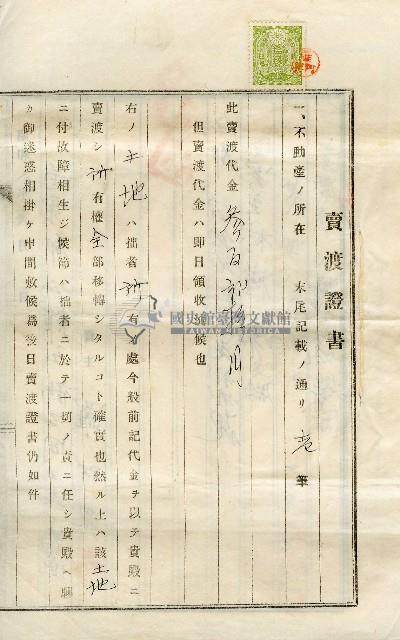 賣渡證書
一、不動產ノ所在 末尾記載ノ通リ 壱 筆
此賣渡代金 參百 拾 円
但賣渡代金ハ即日領收 候也
右ノ土地ハ拙者所有 處今般前記代金ヲ以テ貴殿ニ
賣渡シ所有權全部移轉シタルコト確實也然ル上ハ該土地
ニ付故障相生ジ候節ハ拙者ニ於テ一切ノ責ニ任シ貴殿ヘ聊
カ御迷惑相掛ケ申間敷候爲後日賣渡證書仍如件
國史館臺灣文獻館
TAIWAN HISTORICA